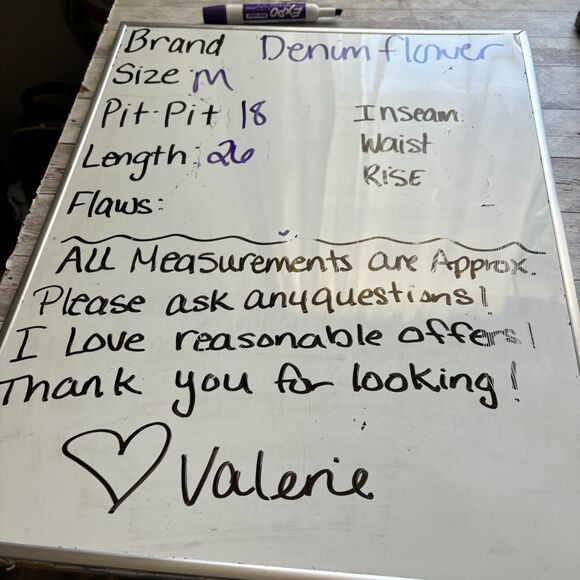 EXPO
Brand Denim flower
Size M
Pit-Pit 18
Length: 26
Flaws:
Inseam
Waist
RISE
ALL Measurements are Approx.
Please ask any questions!
I Love reasonable offers!
Thank you for looking!
Valerie